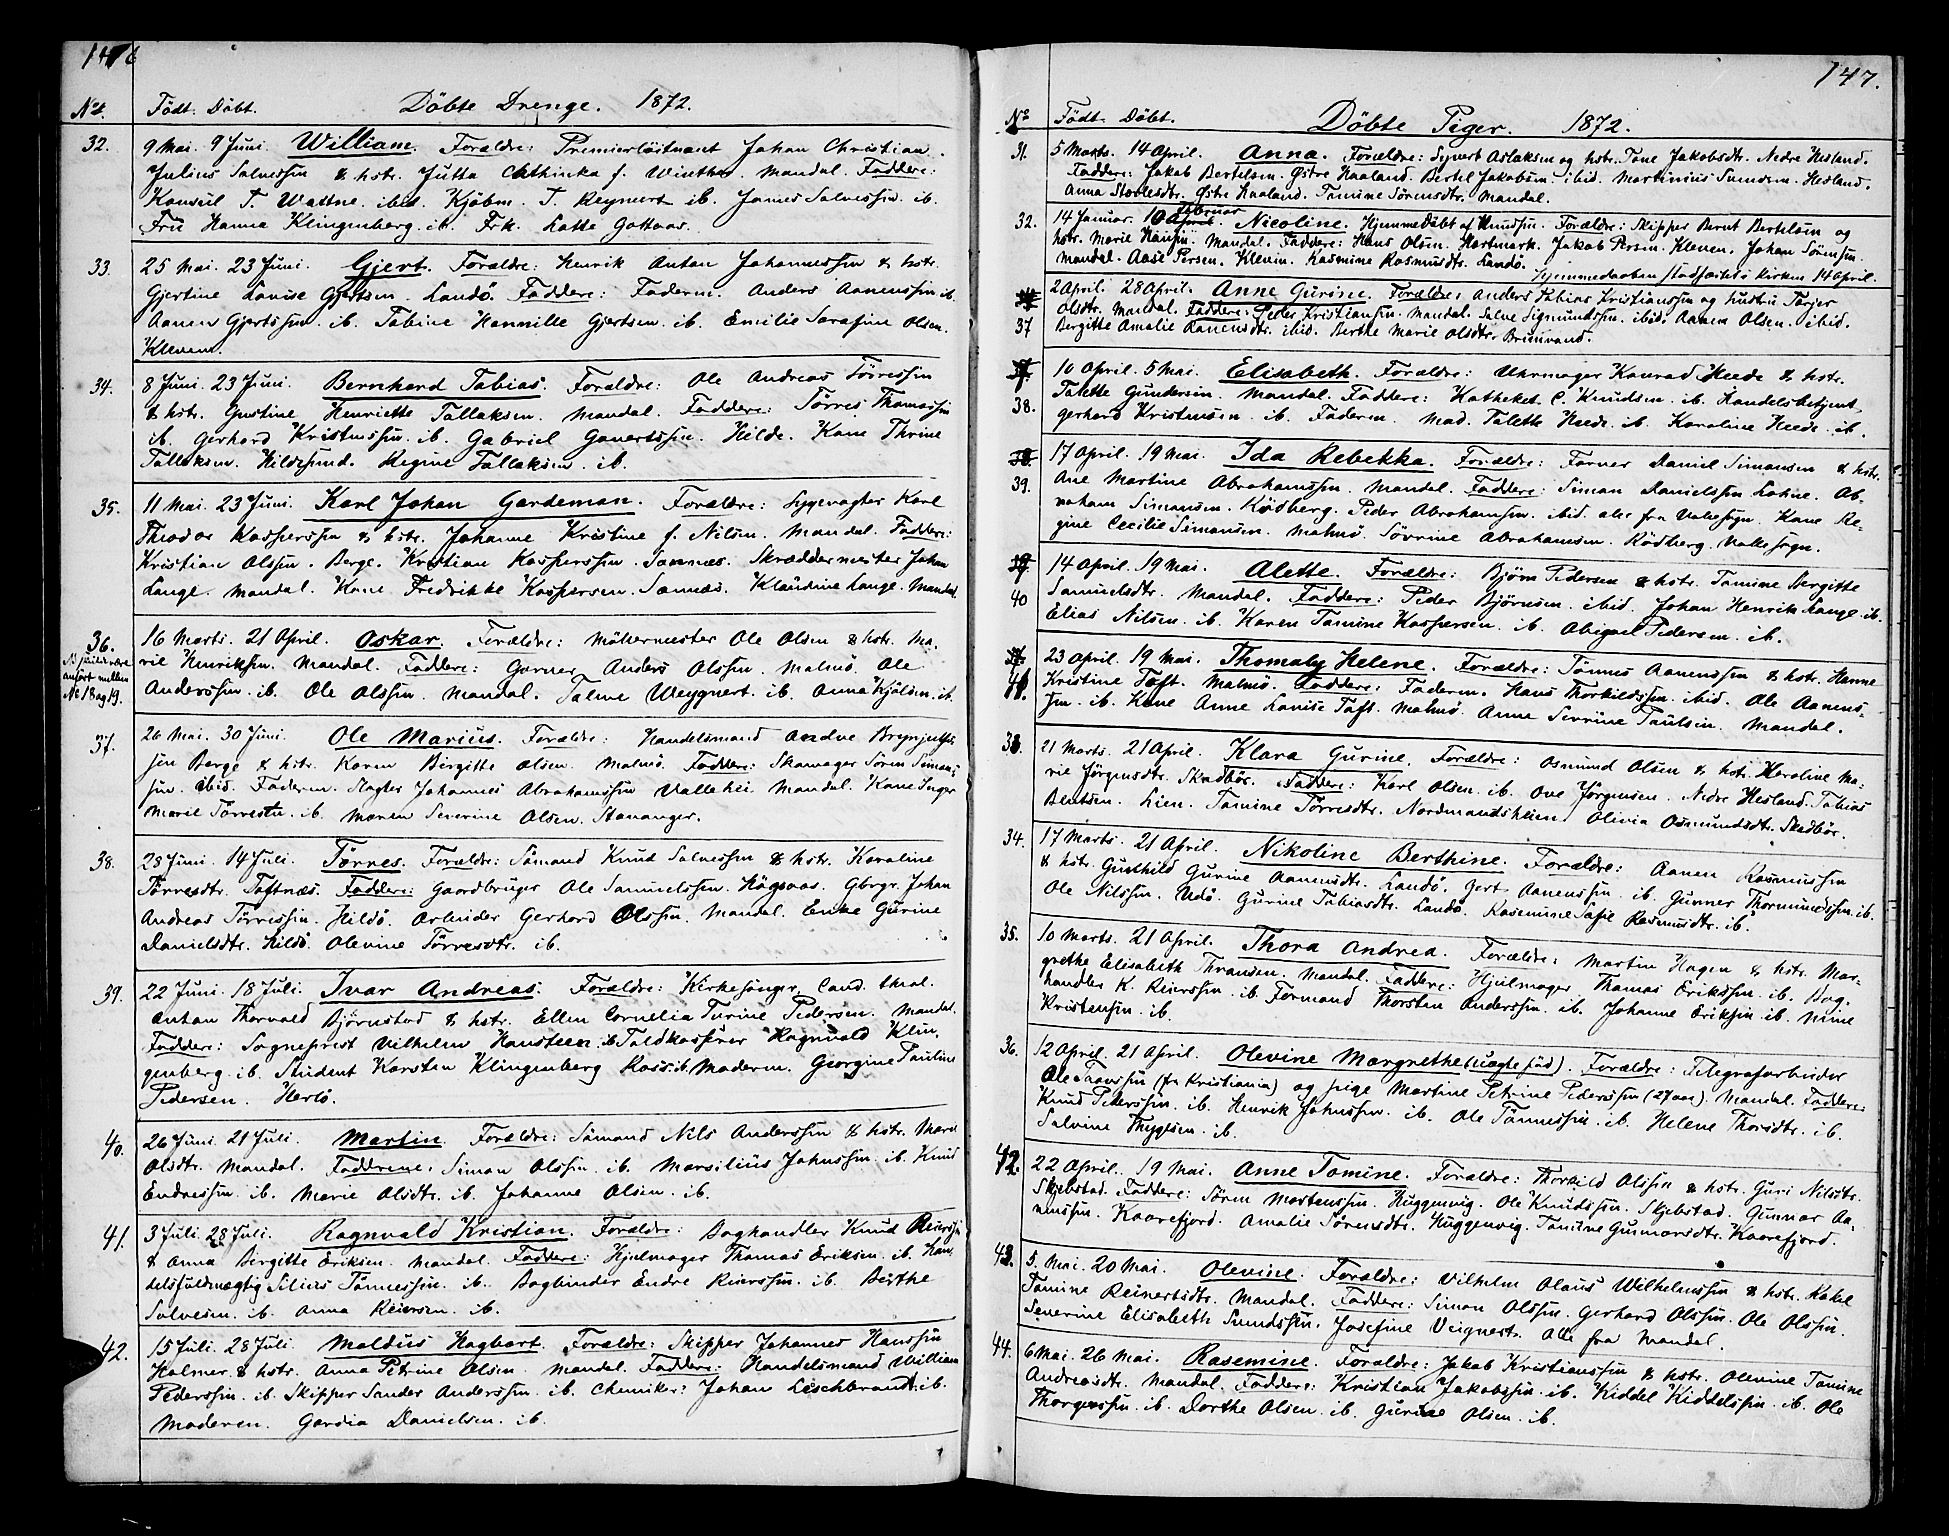 146
No. Født. Döbt. Döbte Drenge. 1872.
32. 9 Mai. 9 Juni. William. Forældre: Premierlöitnant Johan Christian
Julius Salvessen & hstr. Jutta Cathinka f. Winther. Mandal. Faddere:
Konsul T. Wattne. ibid. Kjöbm. T. Reynert ib. James Salvessen. ib.
Fru Hanna Klingenberg. ib. Frk. Lotte Gottaas.
33. 25 Mai. 23 Juni. Gjert. Forældre: Henrik Anton Johannessen & hstr.
Gjertine Lovise Gjertsen. Landö. Faddere: Faderen. Anders Aanenssen ib.
Aanen Gjertssen. ib. Tobine Hannille Gjertsen. ib. Emilie Serafine Olsen.
Kleven.
34. 8 Juni. 23 Juni. Bernhard Tobias. Forældre: Ole Andreas Törressen
& hstr. Gustine Henriette Tallaksen. Mandal. Faddere: Törres Thomassen
ib. Gerhard Kristenssen. ib. Gabriel Govertssen. Hilde. Kone Thrine
Tallaksen. Hildesund. Regine Tallaksen. ib.
35. 11 Mai. 23 Juni. Karl Johan Gardeman. Forældre: Sygevogter Karl
Theodor Kasperssen & hstr. Johanne Kristine f. Nilsen. Mandal. Faddere:
Kristian Olsen. Berge. Kristian Kasperssen. Sannæs. Skræddermester Johan
Lange. Mandal. Kone Fredrikke Kaspersen. Sannæs. Klaudine Lange. Mandal.
36. 16 Marts. 21 April. Oskar. Forældre: Møllermester Ole Olsen & hstr. Ma-
No skulde være anført mellem No 18 og 19.
rie Henriksen. Mandal. Faddere: Garver Anders Olssen. Malmö. Ole
Anderssen. ib. Ole Olssen. Mandal. Talme Weygnert. ib. Anna Kjölsen. ib.
37. 26 Mai. 30 Juni. Ole Marius. Forældre: Handelsmand Andre Brynjulfs-
sen Berge & hstr. Karen Birgitte Olsen. Malmö. Faddere: Skomager Sören Simons-
sen. ibid. Faderen. Slagter Johannes Abrahamssen Vallehei. Mandal. Kone Inger
Marie Törresen. ib. Maren Severine Olsen. Stavanger.
38. 23 Juni. 14 Juli. Törres. Forældre: Sömand Knud Salvessen & hstr. Karoline
Törresdtr. Toftnæs. Faddere: Gaardbruger Ole Samuelssen. Högsaas. Gbrgr. Johan
Andreas Törressen. Hildö. Arbeider Gerhard Olssen. Mandal. Enke Gurine
Danielsdtr. Hildö. Olevine Törresdtr. ib.
39. 22 Juni. 18 Juli. Ivar Andreas. Forældre: Kirkesanger, Cand. theol.
Anton Thorvald Björnstad & hstr. Ellen Cornelia Turine Pedersen. Mandal.
Faddere: Sogneprest Vilhelm Hansteen. ib Toldkasserer Ragnvald Klin-
genberg. ib. Student Karsten Klingenberg Ross. ib. Moderen. Georgine Pauline
Pedersen. Herlö.
40. 26 Juni. 21 Juli. Martin. Forældre: Sömand Nils Anderssen & hstr. Maren
Olsdtr. Mandal. Faddrene: Simon Olssen. ib. Marsilius Johnssen. ib. Knud
Endressen. ib. Marie Olsdtr. ib. Johanne Olsen. ib.
41. 3 Juli. 28 Juli. Ragnvald Kristian. Forældre: Boghandler Knud Reierssen
& Anna Bergitte Eriksen. Mandal. Faddere: Hjulmager Thomas Eriksen. ib. Han-
delsfuldmægtig Silius Tönnessen. ib. Bogbinder Endre Reierssen. ib. Berthe
Salvesen. ib. Anna Reiersen. ib.
42. 15 Juli. 28 Juli. Moldius Hagbart. Forældre: Skipper Johannes Hanssen
Holmer & hstr. Anna Petrine Olsen Mandal. Faddere: Handelsmand William
Pederssen. ib. Skipper Sander Anderssen. ib. Chemiker: Johan Leschbrandt. ib.
Moderen. Gardia Danielsen. ib.
147.
No Født. Döbt. Döbte Piger. 1872.
31. 5 Marts. 14 April. Anna. Forældre: Syvert Aslaksen og hstr. Tone Jakobsdtr. Nedre Hesland.
Faddere: Jakob Bertelsen. Østre Haaland. Bertel Jakobsen. ibid. Martinius Svendsen. Hesland.
Anna Staalesdtr. Østre Haaland. Tomine Sörensdtr. Mandal.
32. 14 Januar. 10 Februar Nicoline. Hjemmedöbt af Knudsen. Forældre: Skipper Bernt Bertelsen og
hstr. Marie Hansen. Mandal. Faddere: Hans Olsen. Hartmark. Jakob Persen. Kleven. Johan Sörensen.
Mandal. Aase Persen. Kleven. Rasmine Rasmusdtr. Landö. Hjemmedaaben stadfæstet i Kirken 14 April.
37 2 April. 28 April. Anne Gurine. Forældre: Anders Tobias Kristianssen og hustru Tarjer
Olsdtr. Mandal. Faddere: Peder Kristiansen. Mandal. Salve Sigmundssen. ibid. Aanen Olsen. ibid.
Bergitte Amalie Aanensdtr. ibid. Berthe Marie Olsdtr. Brinsvand.
38. 10 April. 5 Mai. Elisabeth. Forældre: Uhrmager Konrad Heede & hstr.
Talette Gundersen. Mandal. Faddere: Katheket C. Knudsen. ib. Handelsbetjent
Gerhard Kristensen. ib. Faderen. Mad. Talette Heede. ib. Karoline Heede. ib.
39. 17 April. 19 Mai. Ida Rebekka. Forældre: Farver Daniel Simonsen & hstr.
Ane Martine Abrahamssen. Mandal. Faddere: Simon Danielssen Lohne. Ab-
raham Simonsen. Rödberg. Peder Abrahamsen. ibid alle fra Vallesogn. Kone Re-
gine Cecilie Simonsen. Malmö. Sövrine Abrahamsen. Rödberg. Vallesogn.
40 14 April. 19 Mai. Alette. Forældre: Bjørn Pedersen & hstr. Tomine Bergitte
Samuelsdtr. Mandal. Faddere: Peder Björnsen. ibid. Johan Henrik Lange. ib.
Elias Nilsen. ib. Karen Tomine Kaspersen. ib. Abigael Pedersen. ib.
41. 23 April. 19 Mai. Thomaly Helene. Forældre: Tönnes Aanenssen & hstr. Hanne
Kristine Toft. Malmö. Faddere: Faderen. Hans Thorkildssen. ibid. Ole Aanens-
sen. ib. Kone Anne Lovise Toft. Malmö. Anne Serrine Paulsen. Mandal.
33. 21 Marts. 21 April. Klara Gurine. Forældre: Osmund Olsen & hstr. Karoline Ma-
rie Jörgensdtr. Skadbör. Faddere: Karl Olsen. ib. Ove Jörgensen. Nedre Hesland. Tobias
Bentsen. Lien. Tomine Törresdtr. Nordmandsheien. Olivia Osmundsdtr. Skadbör.
34. 17 Marts. 21 April. Nikoline Berthine. Forældre: Aanen Rasmussen
& hstr. Gunhild Gurine Aanensdtr. Landö. Gert Aanenssen. ib. Gunner Thormundssen. ib.
Ole Nilssen. Udö. Gurine Tobiasdtr. Landö. Rasmine Sofie Rasmusdtr. ib.
35. 10 Marts. 21 April. Thora Andrea. Forældre: Martin Hagen & hstr. Mar-
grethe Elisabeth Thransen. Mandal. Faddere: Hjulmager Thomas Erikssen. ib. Bog-
handler K. Reierssen. ib. Formand Thorsten Anderssen. ib. Johanne Eriksen. ib. Mine
Kristensen. ib.
36. 12 April. 21 April. Olevine Margrethe (uægte föd). Forældre: Telegrafarbeider
Ole Travssen (fr Kristiania) og pige Martine Petrine Pederssen (27 aar). Mandal. Faddere:
Knud Pederssen. ib. Henrik Johnssen. ib. Ole Tönnessen. ib. Helene Thorsdtr. ib.
Salvine Thygesen. ib.
42. 22 April. 19 Mai. Anne Tomine. Forældre: Thorkild Olssen & hstr. Guri Nilsdtr.
Skjebstad. Faddere: Sören Mortenssen. Huggenvig. Ole Knudssen. Skjebstad. Gunnar Aa-
nenssen. Kaarefjord. Amalie Sörensdtr. Huggenvig. Tomine Gunnarsdtr. Kaarefjord.
43. 5. Mai. 20 Mai. Olevine. Forældre: Vilhelm Olaus Wilhelmssen & hstr. Rakel
Tomine Reinertsdtr. Mandal. Faddere: Simon Olssen. Gerhard Olssen. Ole Olssen.
Severine Elisabeth Svendssen. Josefine Veignest. Alle fra Mandal.
44. 6 Mai. 26 Mai. Rasemine. Forældre: Jakob Kristianssen & hstr. Olevine Tomine
Andreasdtr. Mandal. Faddere: Kristian Jakobssen. ib. Kiddel Kiddelssen. ib. Ole
Thorgerssen. ib. Dorthe Olsen. ib. Gurine Olsen. ib.